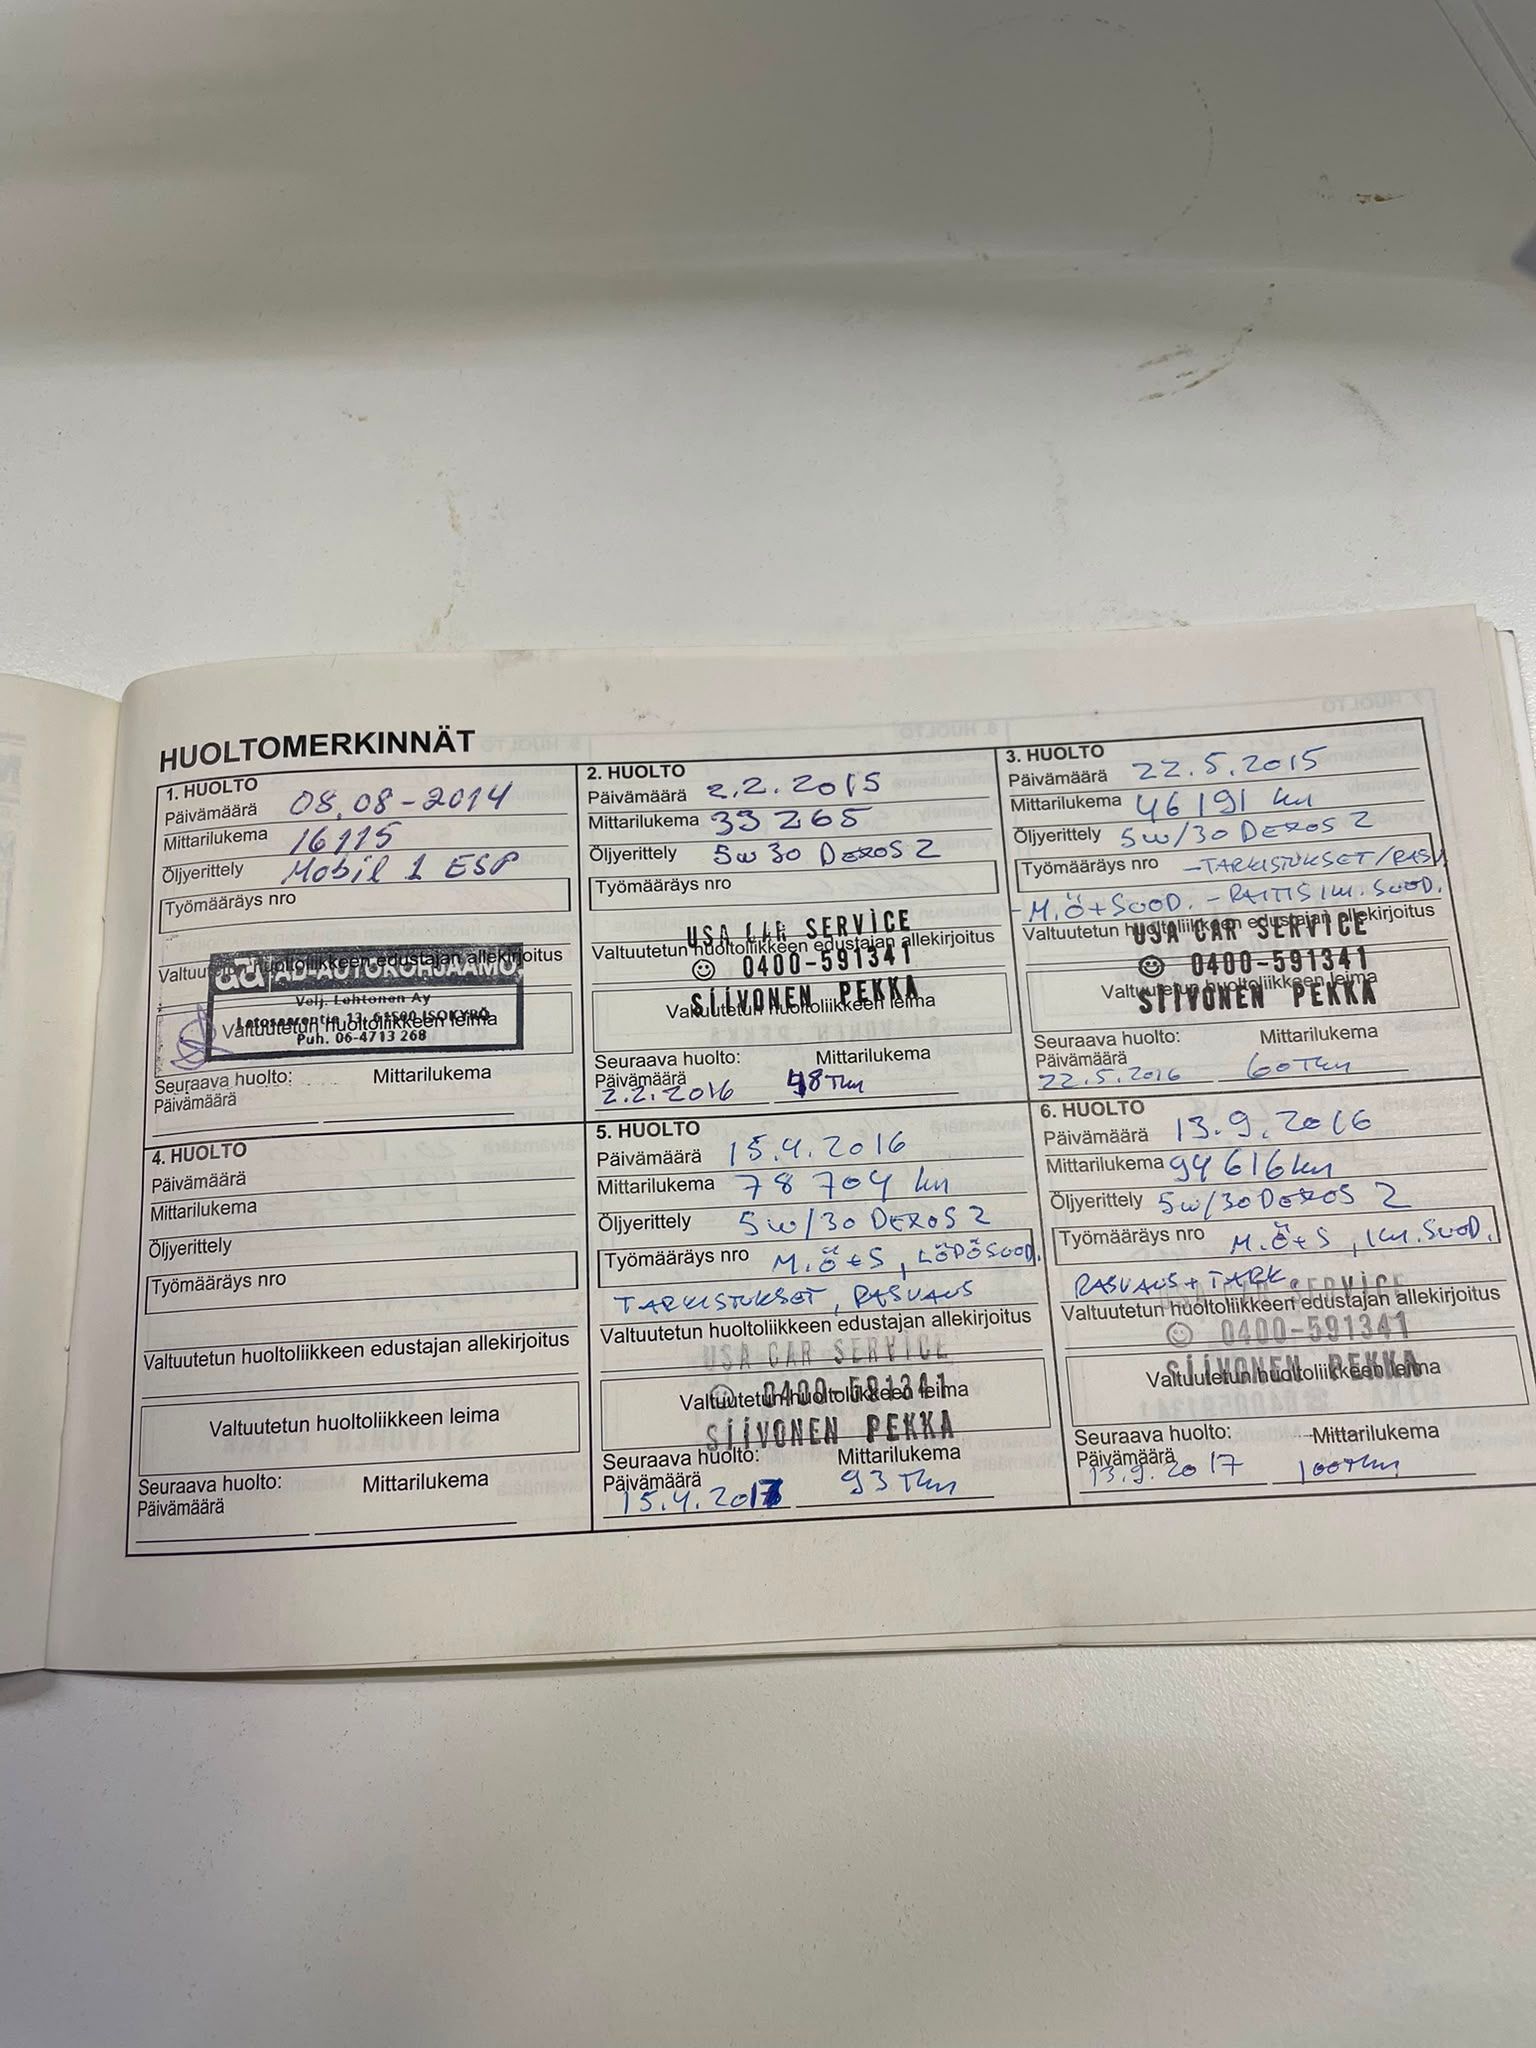 HUOLTOMERKINNÄT
1. HUOLTO
Päivämäärä 08.08-2014
Mittarilukema 16115
Öljyerittely Mobil 1 ESP
Työmääräys nro
Valtuutetun huoltoliikkeen edustajan allekirjoitus
ad AD-AUTOKORJAAMO
Velj. Lehtonen Ay
61500 ISOKYRÖ
Valtuutetun huoltoliikkeen leima
Puh. 06-4713 268
Seuraava huolto: Mittarilukema
Päivämäärä
2. HUOLTO
Päivämäärä 2.2.2015
Mittarilukema 33265
Öljyerittely 5w30 DEXOS 2
Työmääräys nro
USA CAR SERVICE
Valtuutetun huoltoliikkeen edustajan allekirjoitus
☺ 0400-591341
SIIVONEN PEKKA
Valtuutetun huoltoliikkeen leima
Seuraava huolto: Mittarilukema
Päivämäärä
2.2.2016 48 Tkm
3. HUOLTO
Päivämäärä 22.5.2015
Mittarilukema 46191 km
Öljyerittely 5w/30 DEXOS 2
Työmääräys nro -TARKISTUKSET/RASV
- M.Ö+SUOD. - RAITIS ILM. SUOD.
Valtuutetun huoltoliikkeen edustajan allekirjoitus
USA CAR SERVICE
☺ 0400-591341
Valtuutetun huoltoliikkeen leima
SIIVONEN PEKKA
Seuraava huolto: Mittarilukema
Päivämäärä
22.5.2016 60 Tkm
4. HUOLTO
Päivämäärä
Mittarilukema
Öljyerittely
Työmääräys nro
Valtuutetun huoltoliikkeen edustajan allekirjoitus
Valtuutetun huoltoliikkeen leima
Seuraava huolto: Mittarilukema
Päivämäärä
5. HUOLTO
Päivämäärä 15.4.2016
Mittarilukema 78704 km
Öljyerittely 5w/30 DEXOS 2
Työmääräys nro M.Ö+S, LÖPÖSUOD.
TARKISTUKSET, RASVAUS
Valtuutetun huoltoliikkeen edustajan allekirjoitus
USA CAR SERVICE
☺ 0400-591341
Valtuutetun huoltoliikkeen leima
SIIVONEN PEKKA
Seuraava huolto: Mittarilukema
Päivämäärä 93 Tkm
15.4.2017
6. HUOLTO
Päivämäärä 13.9.2016
Mittarilukema 94616 km
Öljyerittely 5w/30 DEXOS 2
Työmääräys nro M.Ö+S, ILM. SUOD.
RASVAUS + TARK.
USA CAR SERVICE
Valtuutetun huoltoliikkeen edustajan allekirjoitus
☺ 0400-591341
SIIVONEN PEKKA
Valtuutetun huoltoliikkeen leima
Seuraava huolto: Mittarilukema
Päivämäärä
13.9.2017 100 Tkm